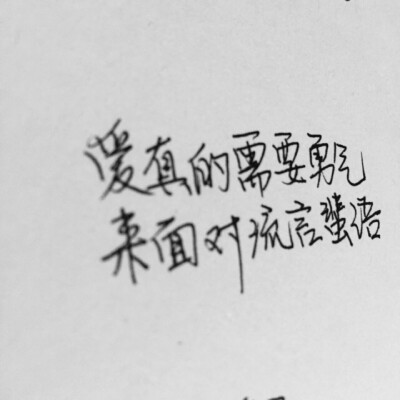 爱真的需要勇气
来面对流言蜚语